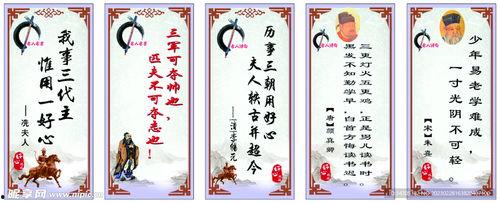 名人名言
我事三代主
惟用一好心
——冼夫人
好心
名人名言
三军可夺帅也，
匹夫不可夺志也！
名人诗句
历事三朝用好心
夫人轶古并超今
好心
名人诗句
三更灯火五更鸡，正是男儿读书时。
黑发不知勤学早，白首方悔读书迟。
【唐】颜真卿
名人诗句
少年易老学难成，
一寸光阴不可轻。
【宋】朱熹
好心
昵享网 www.nipic.cn